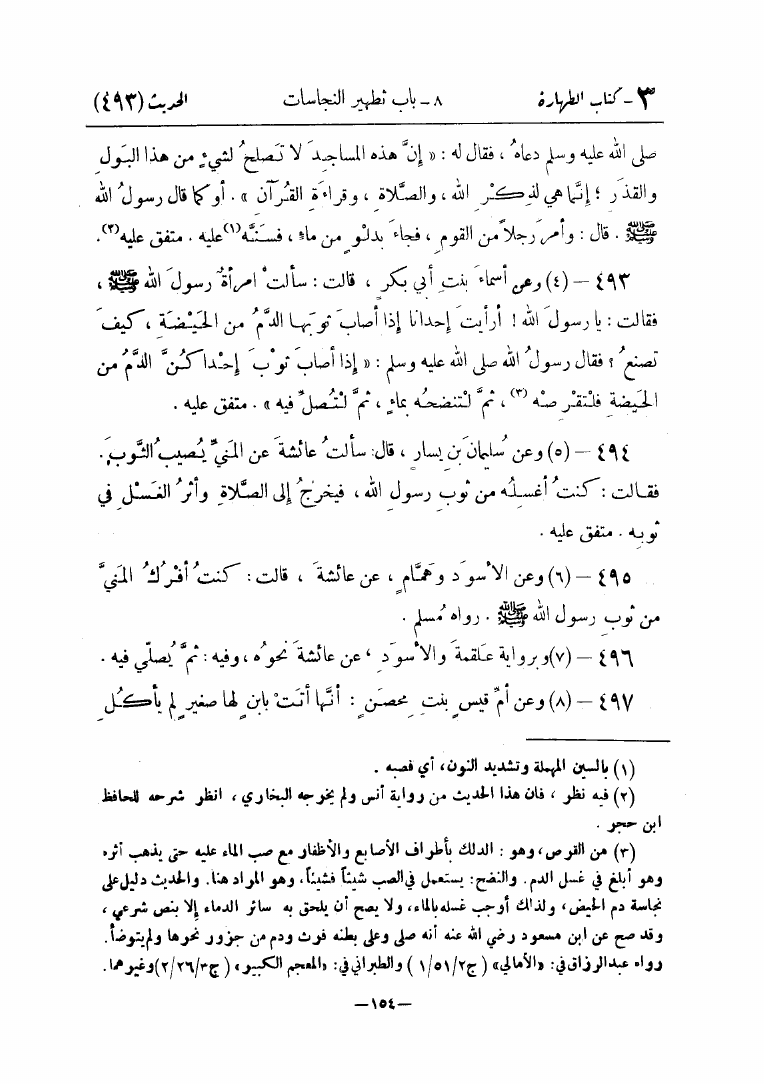 ٣ - كتاب الطهارة ٨ - باب تطهير النجاسات الحديث (٤٩٣)
صلى الله عليه وسلم دعاهُ ، فقال له : « إنَّ هذه المساجِدَ لا تَصلحُ لشيءٍ من هذا البَولِ
والقذَرِ ؛ إنَّما هي لذِكْرِ الله ، والصَّلاةِ ، وقراءَةِ القُرآنِ » . أو كما قال رسولُ الله
ﷺ . قال : وأمرَ رجلاً من القومِ ، فجاءَ بدلْوٍ من ماءٍ ، فسَنَّهُ(١) عليه . متفق عليه(٢).
٤٩٣ - (٤) وعن أسماءَ بنتِ أبي بكرٍ ، قالت : سألتْ امرأةٌ رسولَ الله ﷺ ،
فقالت : يا رسولَ الله ! أرأيتَ إحدانا إذا أصابَ ثوبَها الدَّمُ من الحَيْضَةِ ، كيفَ
تصنعُ ؟ فقال رسولُ الله صلى الله عليه وسلم : « إذا أصابَ ثوْبَ إحْداكُنَّ الدَّمُ من
الحَيضةِ فلْتقْرِصْه (٣) ، ثمَّ لْتنضحْه بماءٍ ، ثمَّ لْتُصلِّ فيه » . متفق عليه .
٤٩٤ - (٥) وعن سُليمانَ بنِ يسارٍ ، قال: سألتُ عائشةَ عن المَنيِّ يُصيبُ الثَّوبَ.
فقـالت : كنتُ أغسِلُه من ثوبِ رسولِ الله ، فيخرُجُ إلى الصَّلاةِ وأثرُ الغَسْلِ في
ثوبِه . متفق عليه .
٤٩٥ - (٦) وعن الأسودِ وهَمَّامٍ ، عن عائشةَ ، قالت : كنتُ أفْرُكُ المَنيَّ
من ثوبِ رسولِ الله ﷺ . رواه مُسلم .
٤٩٦ - (٧) وبرواية علقمةَ والأسودِ ، عن عائشةَ نحوُه ، وفيه : ثمَّ يُصلّي فيه .
٤٩٧ - (٨) وعن أمِّ قيسٍ بنتِ مِحصَنٍ : أنَّها أتَتْ بابنٍ لها صغيرٍ لم يأكُلِ
(١) بالسين المهملة وتشديد النون، أي فصبه .
(٢) فيه نظر ، فان هذا الحديث من رواية أنس ولم يخرجه البخاري ، انظر شرحه للحافظ
ابن حجر .
(٣) من القرص، وهو : الدلك بأطراف الأصابع والأظفار مع صب الماء عليه حتى يذهب أثره
وهو أبلغ في غسل الدم. والنضح: يستعمل في الصب شيئاً فشيئاً، وهو المراد هنا. والحديث دليل على
نجاسة دم الحيض، ولذلك أوجب غسله بالماء، ولا يصح أن يلحق به سائر الدماء إلا بنص شرعي ،
وقد صح عن ابن مسعود رضي الله عنه أنه صلى وعلى بطنه فرث ودم من جزور نحرها ولم يتوضأ.
رواه عبدالرزاق في: «الأمالي» ( ج٢/٥١/١ ) والطبراني في: «المعجم الكبير» ( ج٣/٢٦/٢) وغيرهما.
—١٥٤—